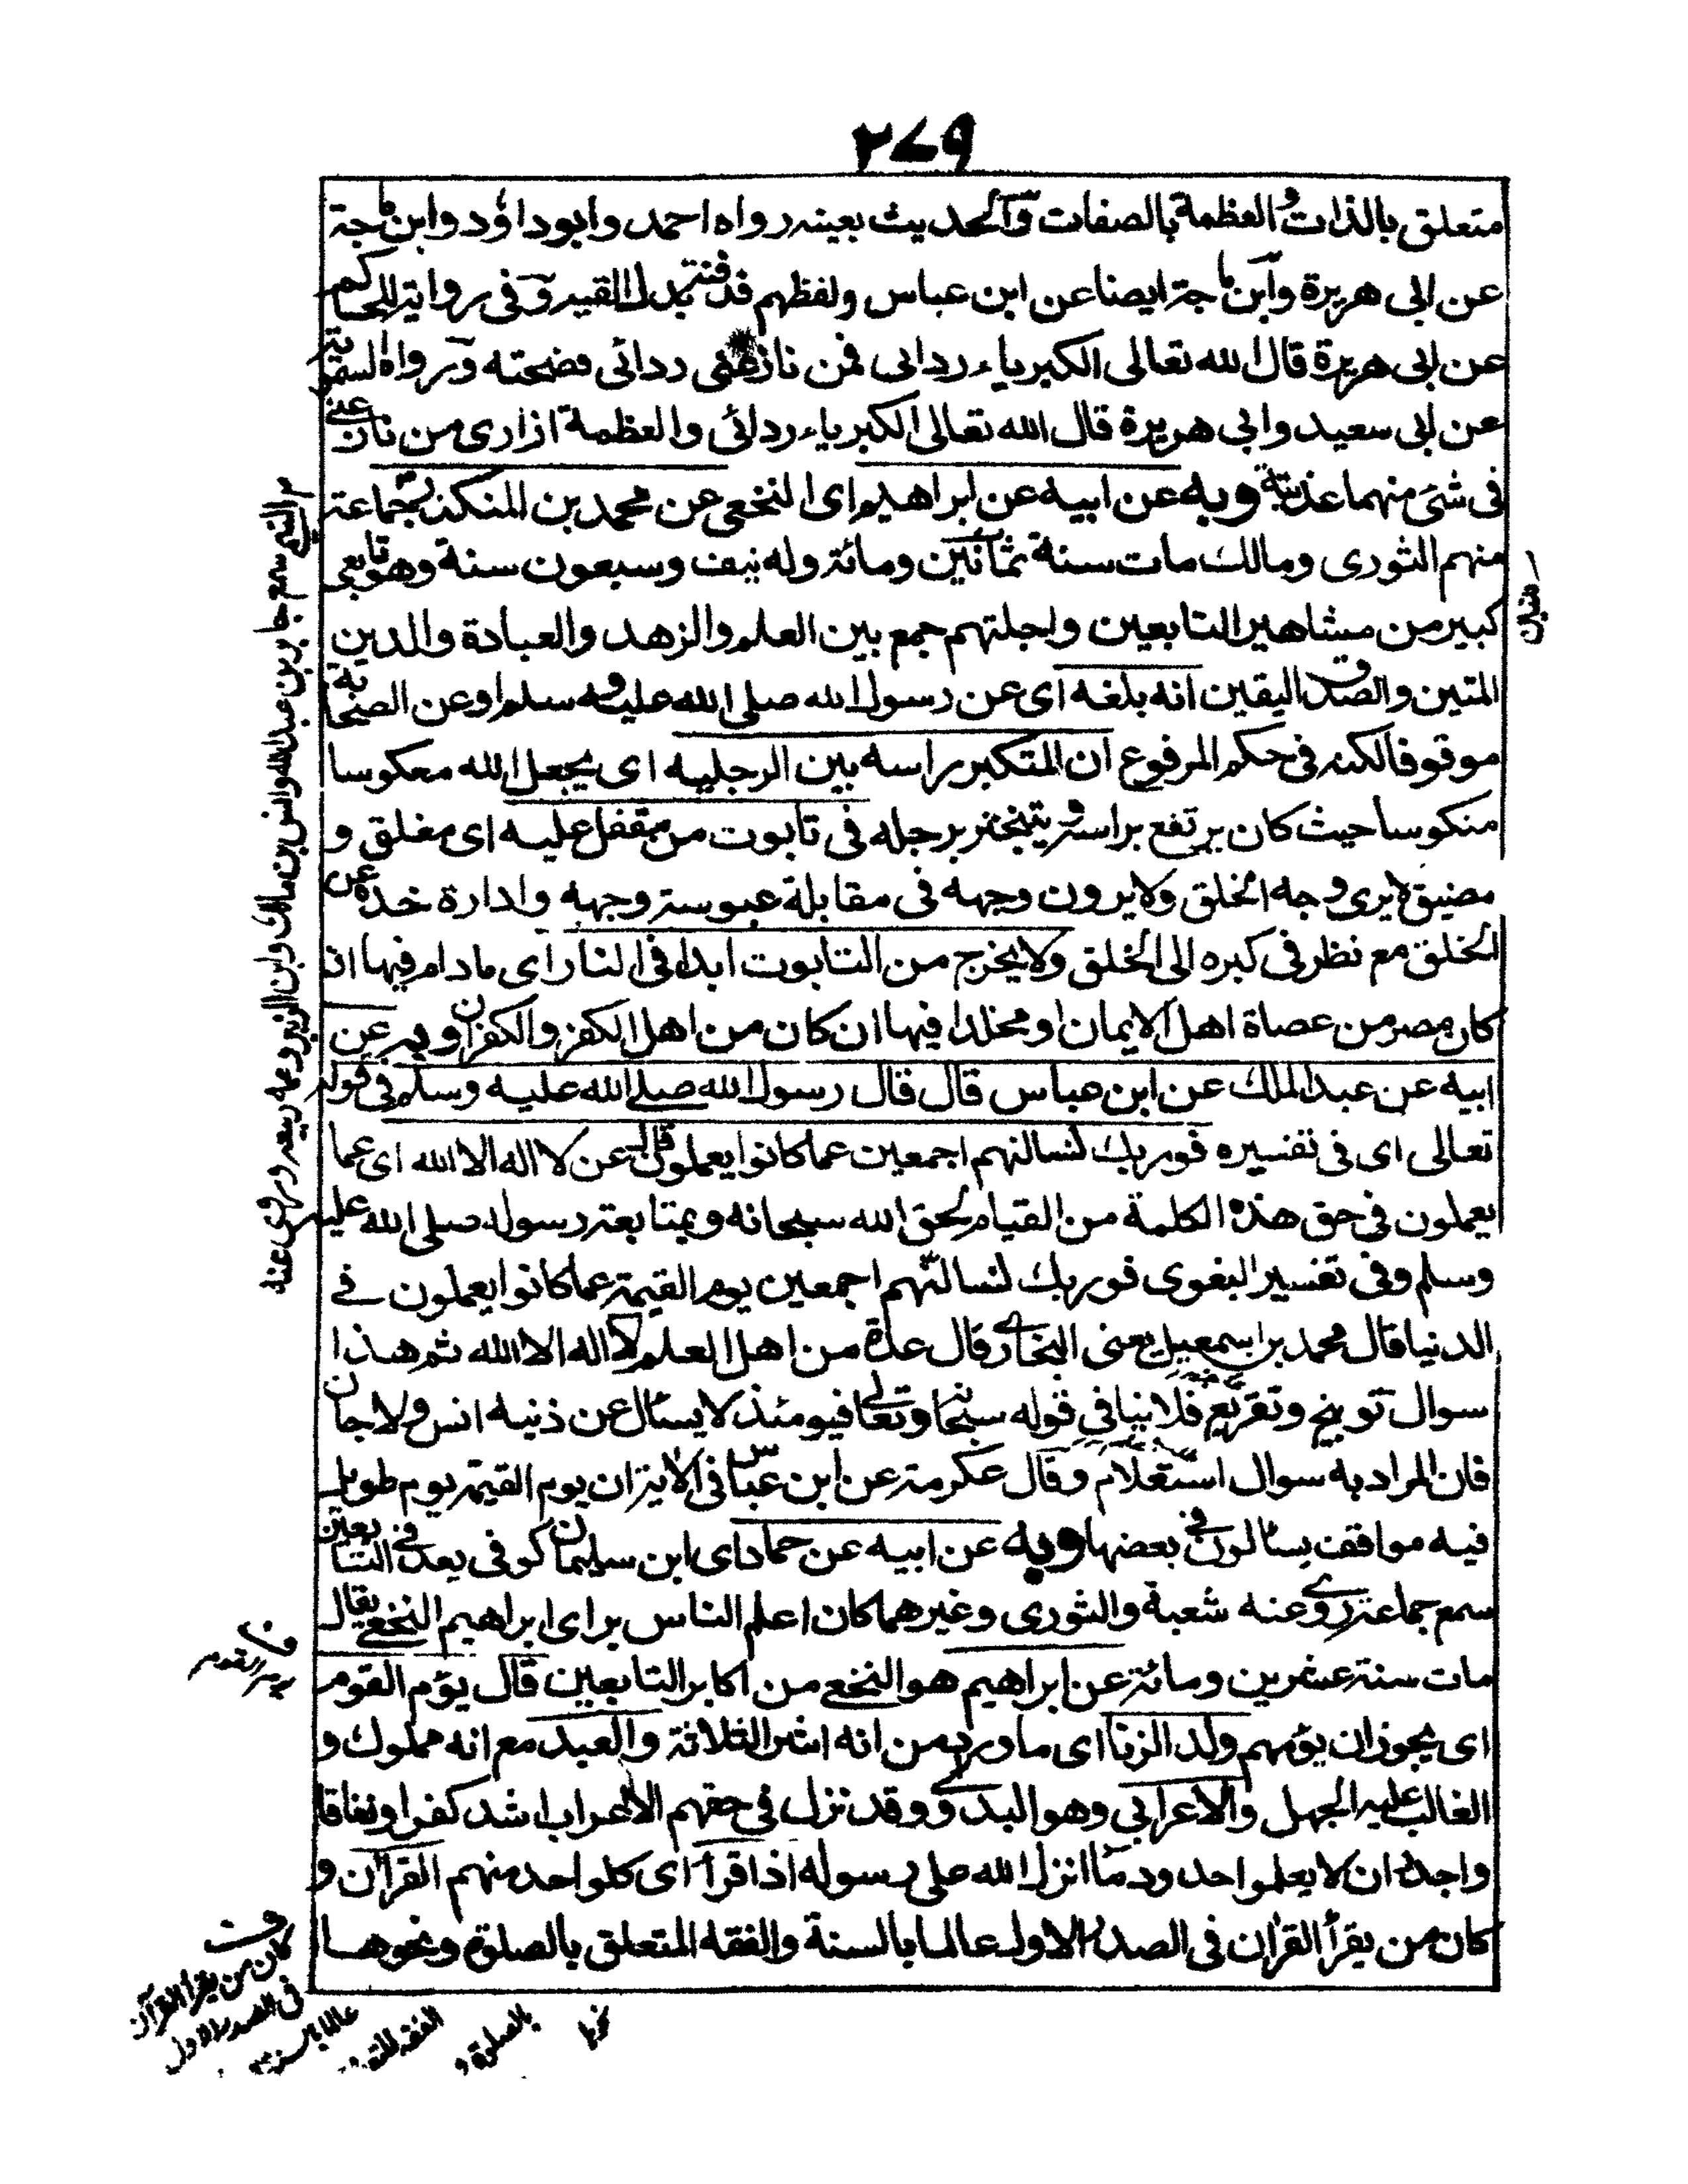 ٢٧٩
متعلق بالذات والعظمة بالصفات والحديث بعينه رواه احمد وابوداؤد وابن ماجة
عن ابى هريرة وابن ماجة ايضا عن ابن عباس ولفظهم قذفته بدل القيه وفى رواية للحاكم
عن ابى هريرة قال الله تعالى الكبرياء ردائى فمن نازعنى ردائى قصمته ورواه السمويه
عن ابى سعيد وابي هريرة قال الله تعالى الكبرياء ردائى والعظمة ازارى من نازعنى
فى شئ منهما عذبته وبه عن ابيه عن ابراهيم اى النخعى عن محمد بن المنكدر جماعة
منهم الثورى ومالك مات سنة ثمانين ومائة وله نيف وسبعون سنة وهو تابعى
كبير من مشاهير التابعين واجلتهم جمع بين العلم والزهد والعبادة والدين
المتين والصدق اليقين انه بلغه اى عن رسول الله صلى الله عليه وسلم او عن الصحابة
موقوفا لكنه فى حكم المرفوع ان المتكبر راسه بين الرجليه اى يجعل الله معكوسا
منكوسا حيث كان يرتفع براسه ويتبختر برجله فى تابوت من مقفل عليه اى مغلق و
مضيق لايرى وجه الخلق ولايرون وجهه فى مقابلة عبوسة وجهه وادارة خده عن
الخلق مع نظر فى كبره الى الخلق ولا يخرج من التابوت ابدا فى النار اى مادام فيها ان
كان مصر من عصاة اهل الايمان او مخلدا فيها ان كان من اهل الكفر والكفران وبه عن
ابيه عن عبدالملك عن ابن عباس قال قال رسول الله صلے الله عليه وسلم فى قوله
تعالى اى فى تفسيره فوربك لنسالنهم اجمعين عما كانوا يعملون قال عن لا اله الا الله اى عما
يعملون فى حق هذه الكلمة من القيام لحق الله سبحانه وبمتابعة رسوله صلى الله عليه
وسلم وفى تفسير البغوى فوربك لنسالنهم اجمعين يوم القيمة عما كانوا يعملون فے
الدنيا قال محمد بن اسمعيل يعنى البخارے قال عدة من اهل العلم لا اله الا الله ثم هذا
سوال توبيخ وتقريع فلا ينافي قوله سبحانه وتعالے فيومئذ لا يسئال عن ذنبه انس ولا جان
فان المراد به سوال استعلام وقال عكرمة عن ابن عباس فى الاية ان يوم القيمة يوم طويل
فيه مواقف يسئالون فى بعضها وبه عن ابيه عن حماد اى ابن سليمان كوفى يعد فى التابعين
سمع جماعة روے عنه شعبة والثورى وغيرهما كان اعلم الناس براى ابراهيم النخعے يقال
مات سنة عشرين ومائة عن ابراهيم هو النخعے من اكابر التابعين قال يؤم القوم
اى يجوز ان يؤمهم ولد الزنا اى ما ورد من انه اشر الثلاثة والعبد مع انه مملوك و
الغالب عليه الجهل والاعرابي وهو البدوے وقد نزل فى حقهم الاعراب اشد كفرا ونفاقا
واجدر ان لا يعلموا حدود ما انزل الله على رسوله اذا قرأ اى كلواحد منهم القرآن و
كان من يقرأ القران فى الصدر الاول عالما بالسنة والفقه المتعلق بالصلوة ونحوها
سمع جابر بن عبدالله وانس بن مالك وابن الزبير وعمه ربيعه وروى عنه
يؤم القوم
كان من يقرأ القرآن
فى الصدر الاول
عالما بالسنة
بالصلوة و